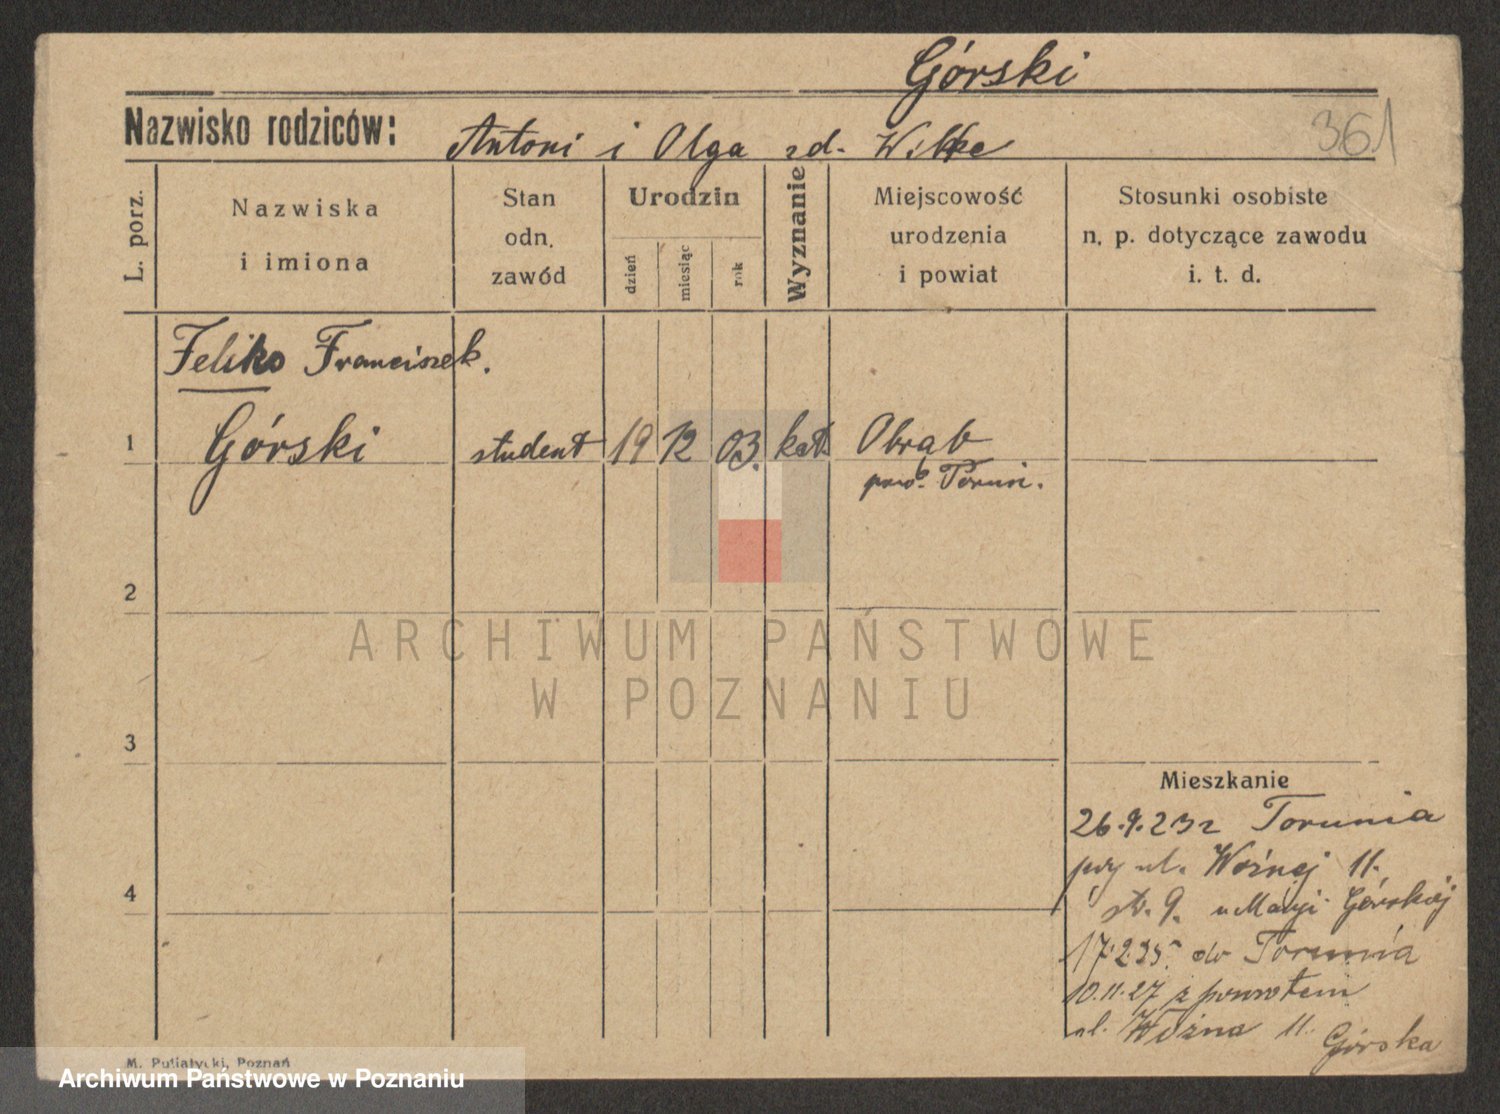 Górski
Nazwisko rodziców: Antoni i Olga zd. Wilke
361
L. porz.
Nazwiska
i imiona
Stan
odn.
zawód
Urodzin
dzień
miesiąc
rok
Wyznanie
Miejscowość
urodzenia
i powiat
Stosunki osobiste
n. p. dotyczące zawodu
i. t. d.
Franciszek.
1 Górski student 19 12 03. kat. Obrąb
pow. Toruń.
2
ARCHIWUM PAŃSTWOWE
W POZNANIU
3
Mieszkanie
26.9.23 z Torunia
przy ul. Woźnej 11.
4
9. u Maryi Górskiej
17.2.25. do Torunia
10.11.27 z powrotem
ul. Woźna 11. Górska
M. Putiatycki, Poznań
Archiwum Państwowe w Poznaniu